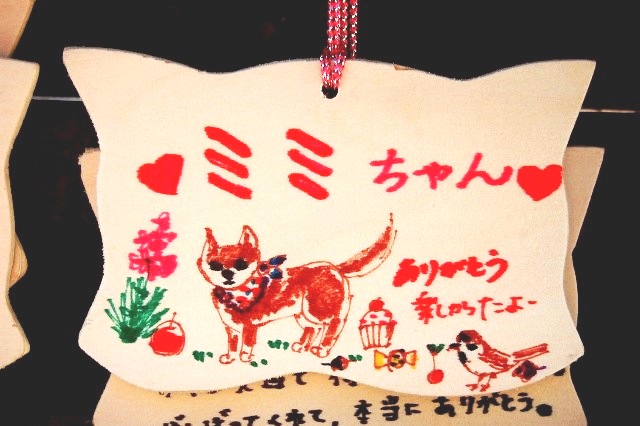 ♥ミミちゃん♥
ありがとう
楽しかったよー
がんばってくれて、本当にありがとう。